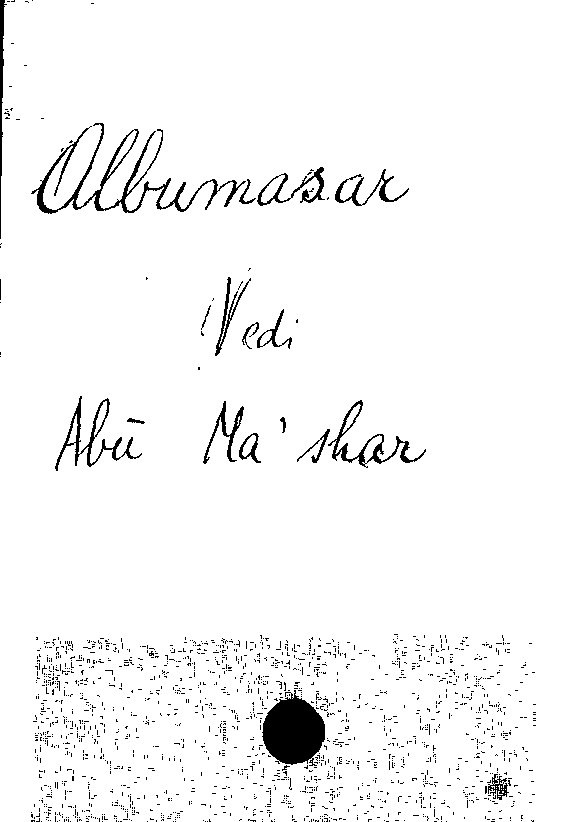 Albumasar
Vedi
Abū Ma'shar